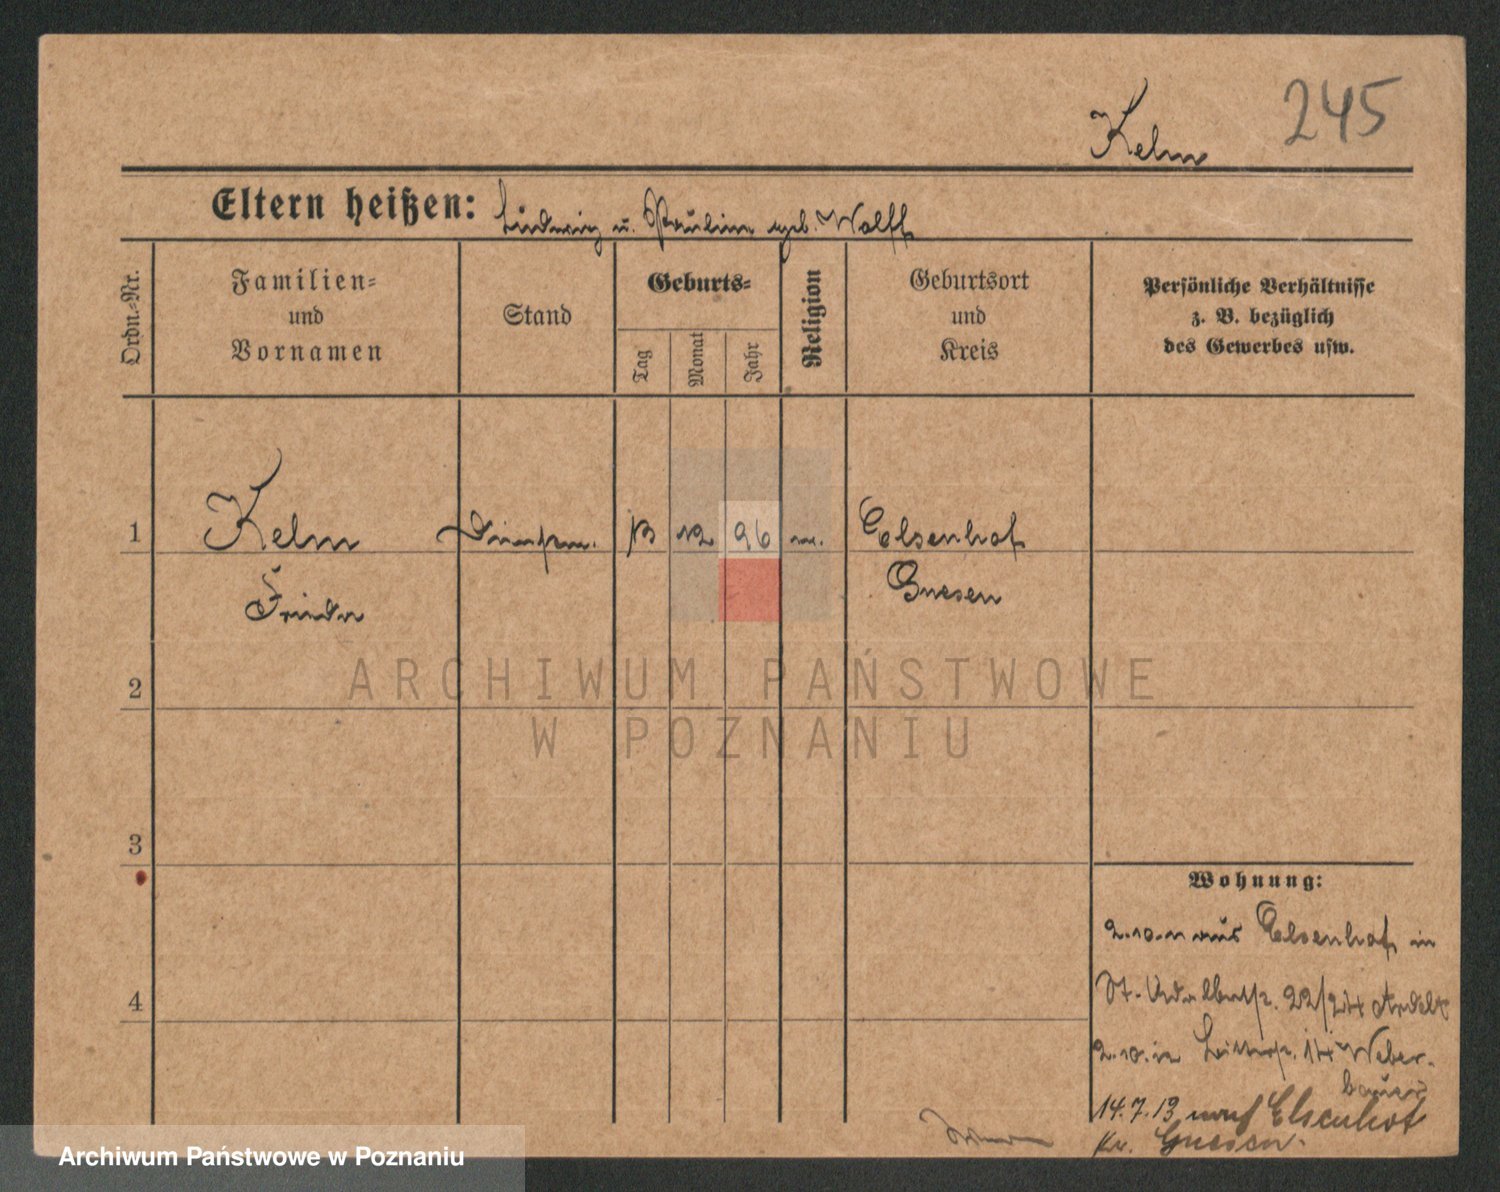 245
Kelm
Eltern heißen: Ludwig u. Pauline geb. Wolff
Ordn.-Nr.
Familien-
und
Vornamen
Stand
Geburts-
Tag
Monat
Jahr
Religion
Geburtsort
und
Kreis
Persönliche Verhältnisse
z. B. bezüglich
des Gewerbes usw.
1
Kelm
Frieda
13
12
96
Elsenhof
Gnesen
2
ARCHIWUM PAŃSTWOWE
W POZNANIU
3
4
Wohnung:
2.10.11 aus Elsenhof in
St. Adalbertstr. 22/24
2.10.12 14 Weber-
bauer
14.7.13 nach Elsenhof
Kr. Gnesen.
Archiwum Państwowe w Poznaniu